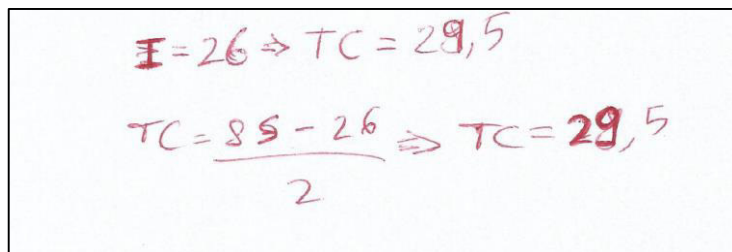 I = 26 ⇒ TC = 29,5
TC = 85 - 26 / 2 ⇒ TC = 29,5